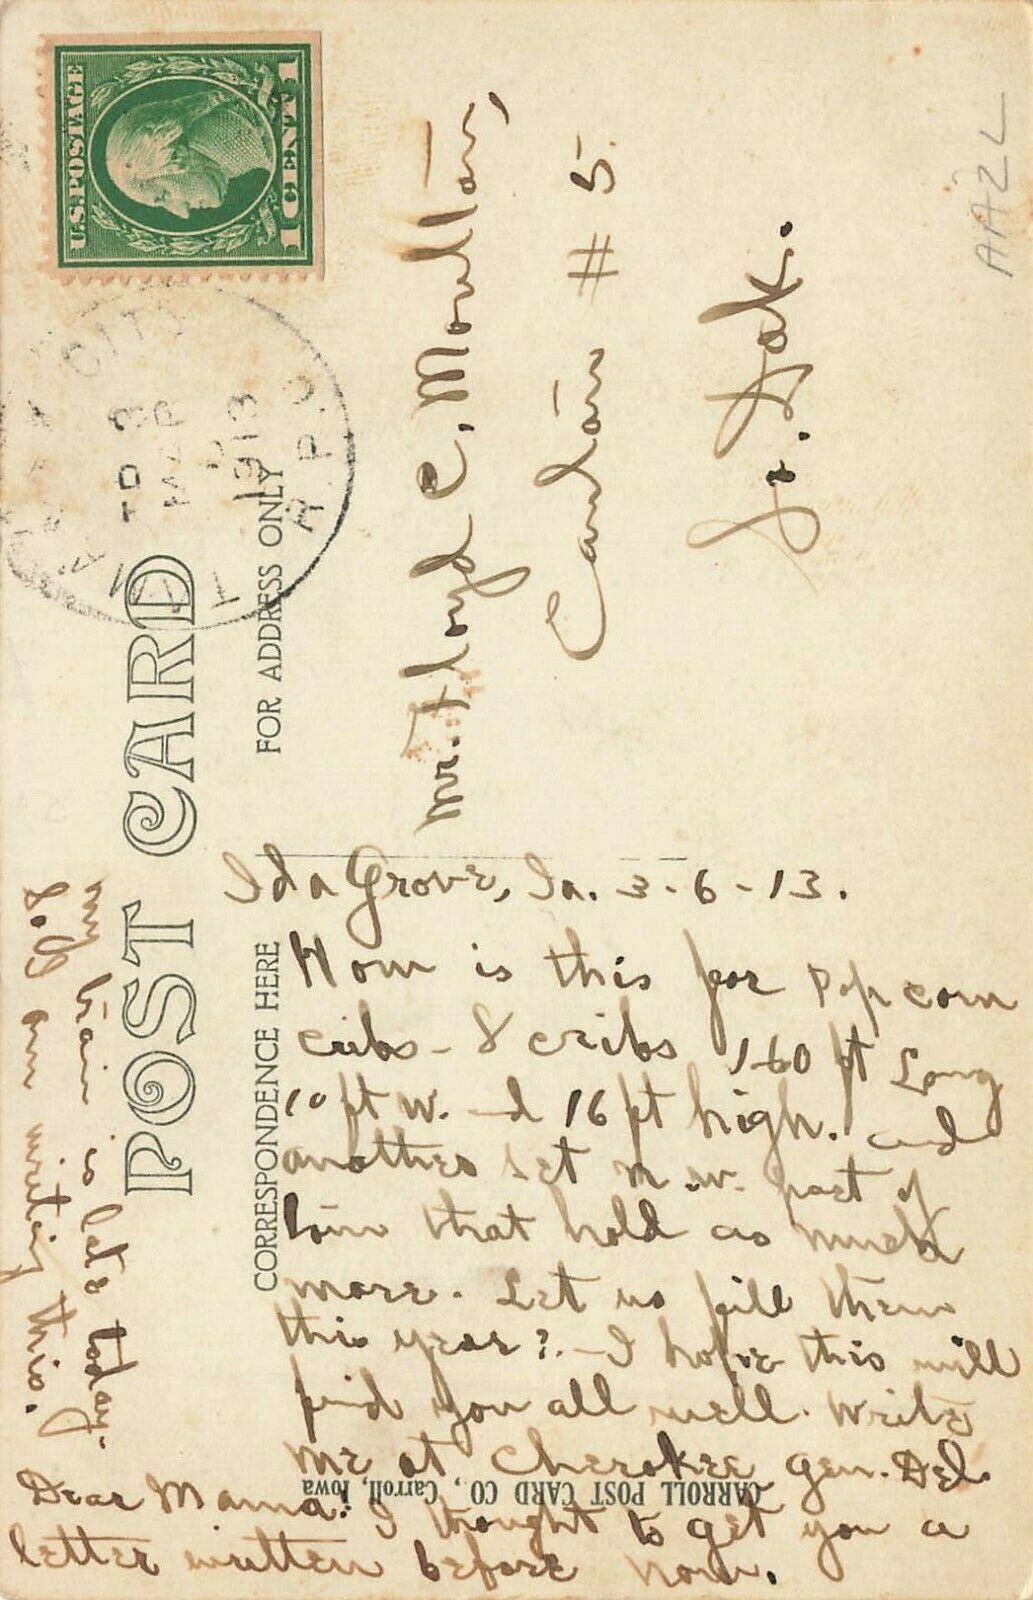 POST CARD
CORRESPONDENCE HERE
FOR ADDRESS ONLY
U.S. POSTAGE
1 CENT 1
CITY
TR 3
MAR
1913
R.P.O.
Mr. Floyd C. Moulton,
Canton # 5.
So. Dak.
AA2L
Ida Grove, Ia. 3-6-13.
How is this for Pop corn
cribs - 8 cribs 160 ft Long
10 ft W. - d 16 ft high. and
another set N.W. part of
town that hold as much
more. Let us fill them
this year? - I hope this will
find you all well. Write
me at Cherokee Gen. Del.
Dear Mama: I thought to get you a
letter written before now.
my train is late today
so am writing this.
CARROLL POST CARD CO., Carroll, Iowa